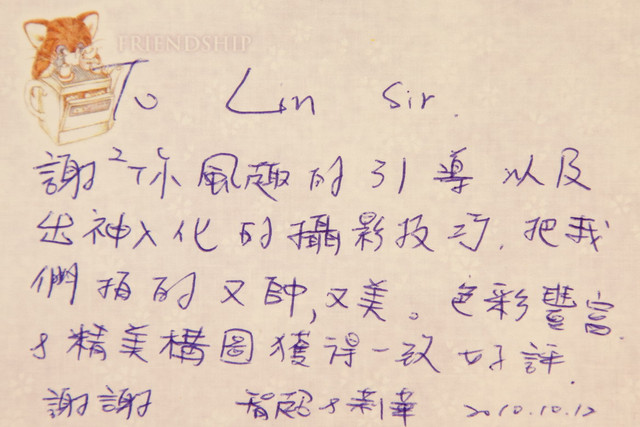 FRIENDSHIP
To Lin Sir.
謝²你風趣的引導以及
出神入化的攝影技巧.把我
們拍的又帥,又美。色彩豐富.
&精美構圖獲得一致好評.
謝謝 智超&莉華 2010.10.12